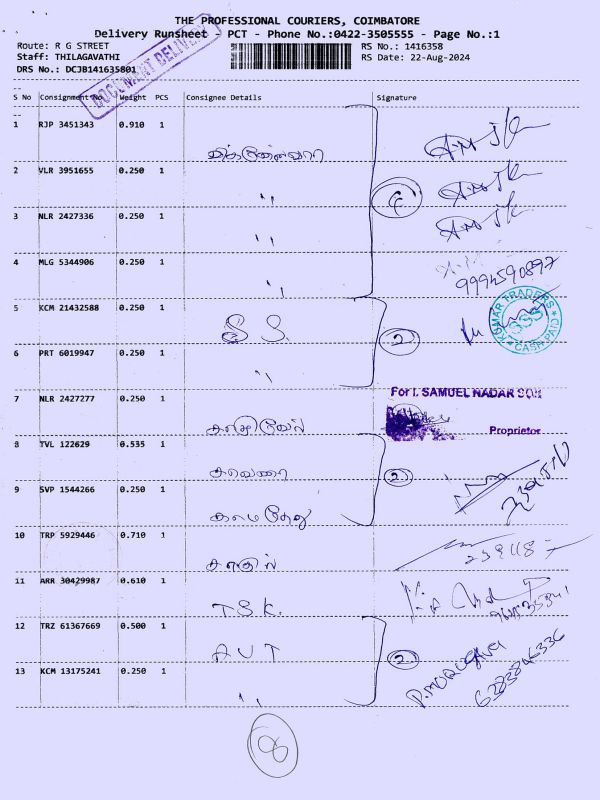 THE PROFESSIONAL COURIERS, COIMBATORE
Delivery Runsheet - PCT - Phone No.:0422-3505555 - Page No.:1
Route: R G STREET
RS No.: 1416358
Staff: THILAGAVATHI
RS Date: 22-Aug-2024
DRS No.: DCJB141635801
DOCUMENT DELIVERY
S No Consignment No Weight PCS Consignee Details Signature
1 RJP 3451343 0.910 1
2 VLR 3951655 0.250 1 ,,
3 NLR 2427336 0.250 1 ,,
4 MLG 5344906 0.250 1 ,, 9994590897
5 KCM 21432588 0.250 1 S S. 2
KUMAR TRADERS
SSS
CASH PAID
6 PRT 6019947 0.250 1 ,,
7 NLR 2427277 0.250 1
For I. SAMUEL NADAR SON
Proprietor
8 TVL 122629 0.535 1 2
9 SVP 1544266 0.250 1
10 TRP 5929446 0.710 1
11 ARR 30429987 0.610 1 T.S.K.
12 TRZ 61367669 0.500 1 A U T 2
13 KCM 13175241 0.250 1 ,, 6383846336
8